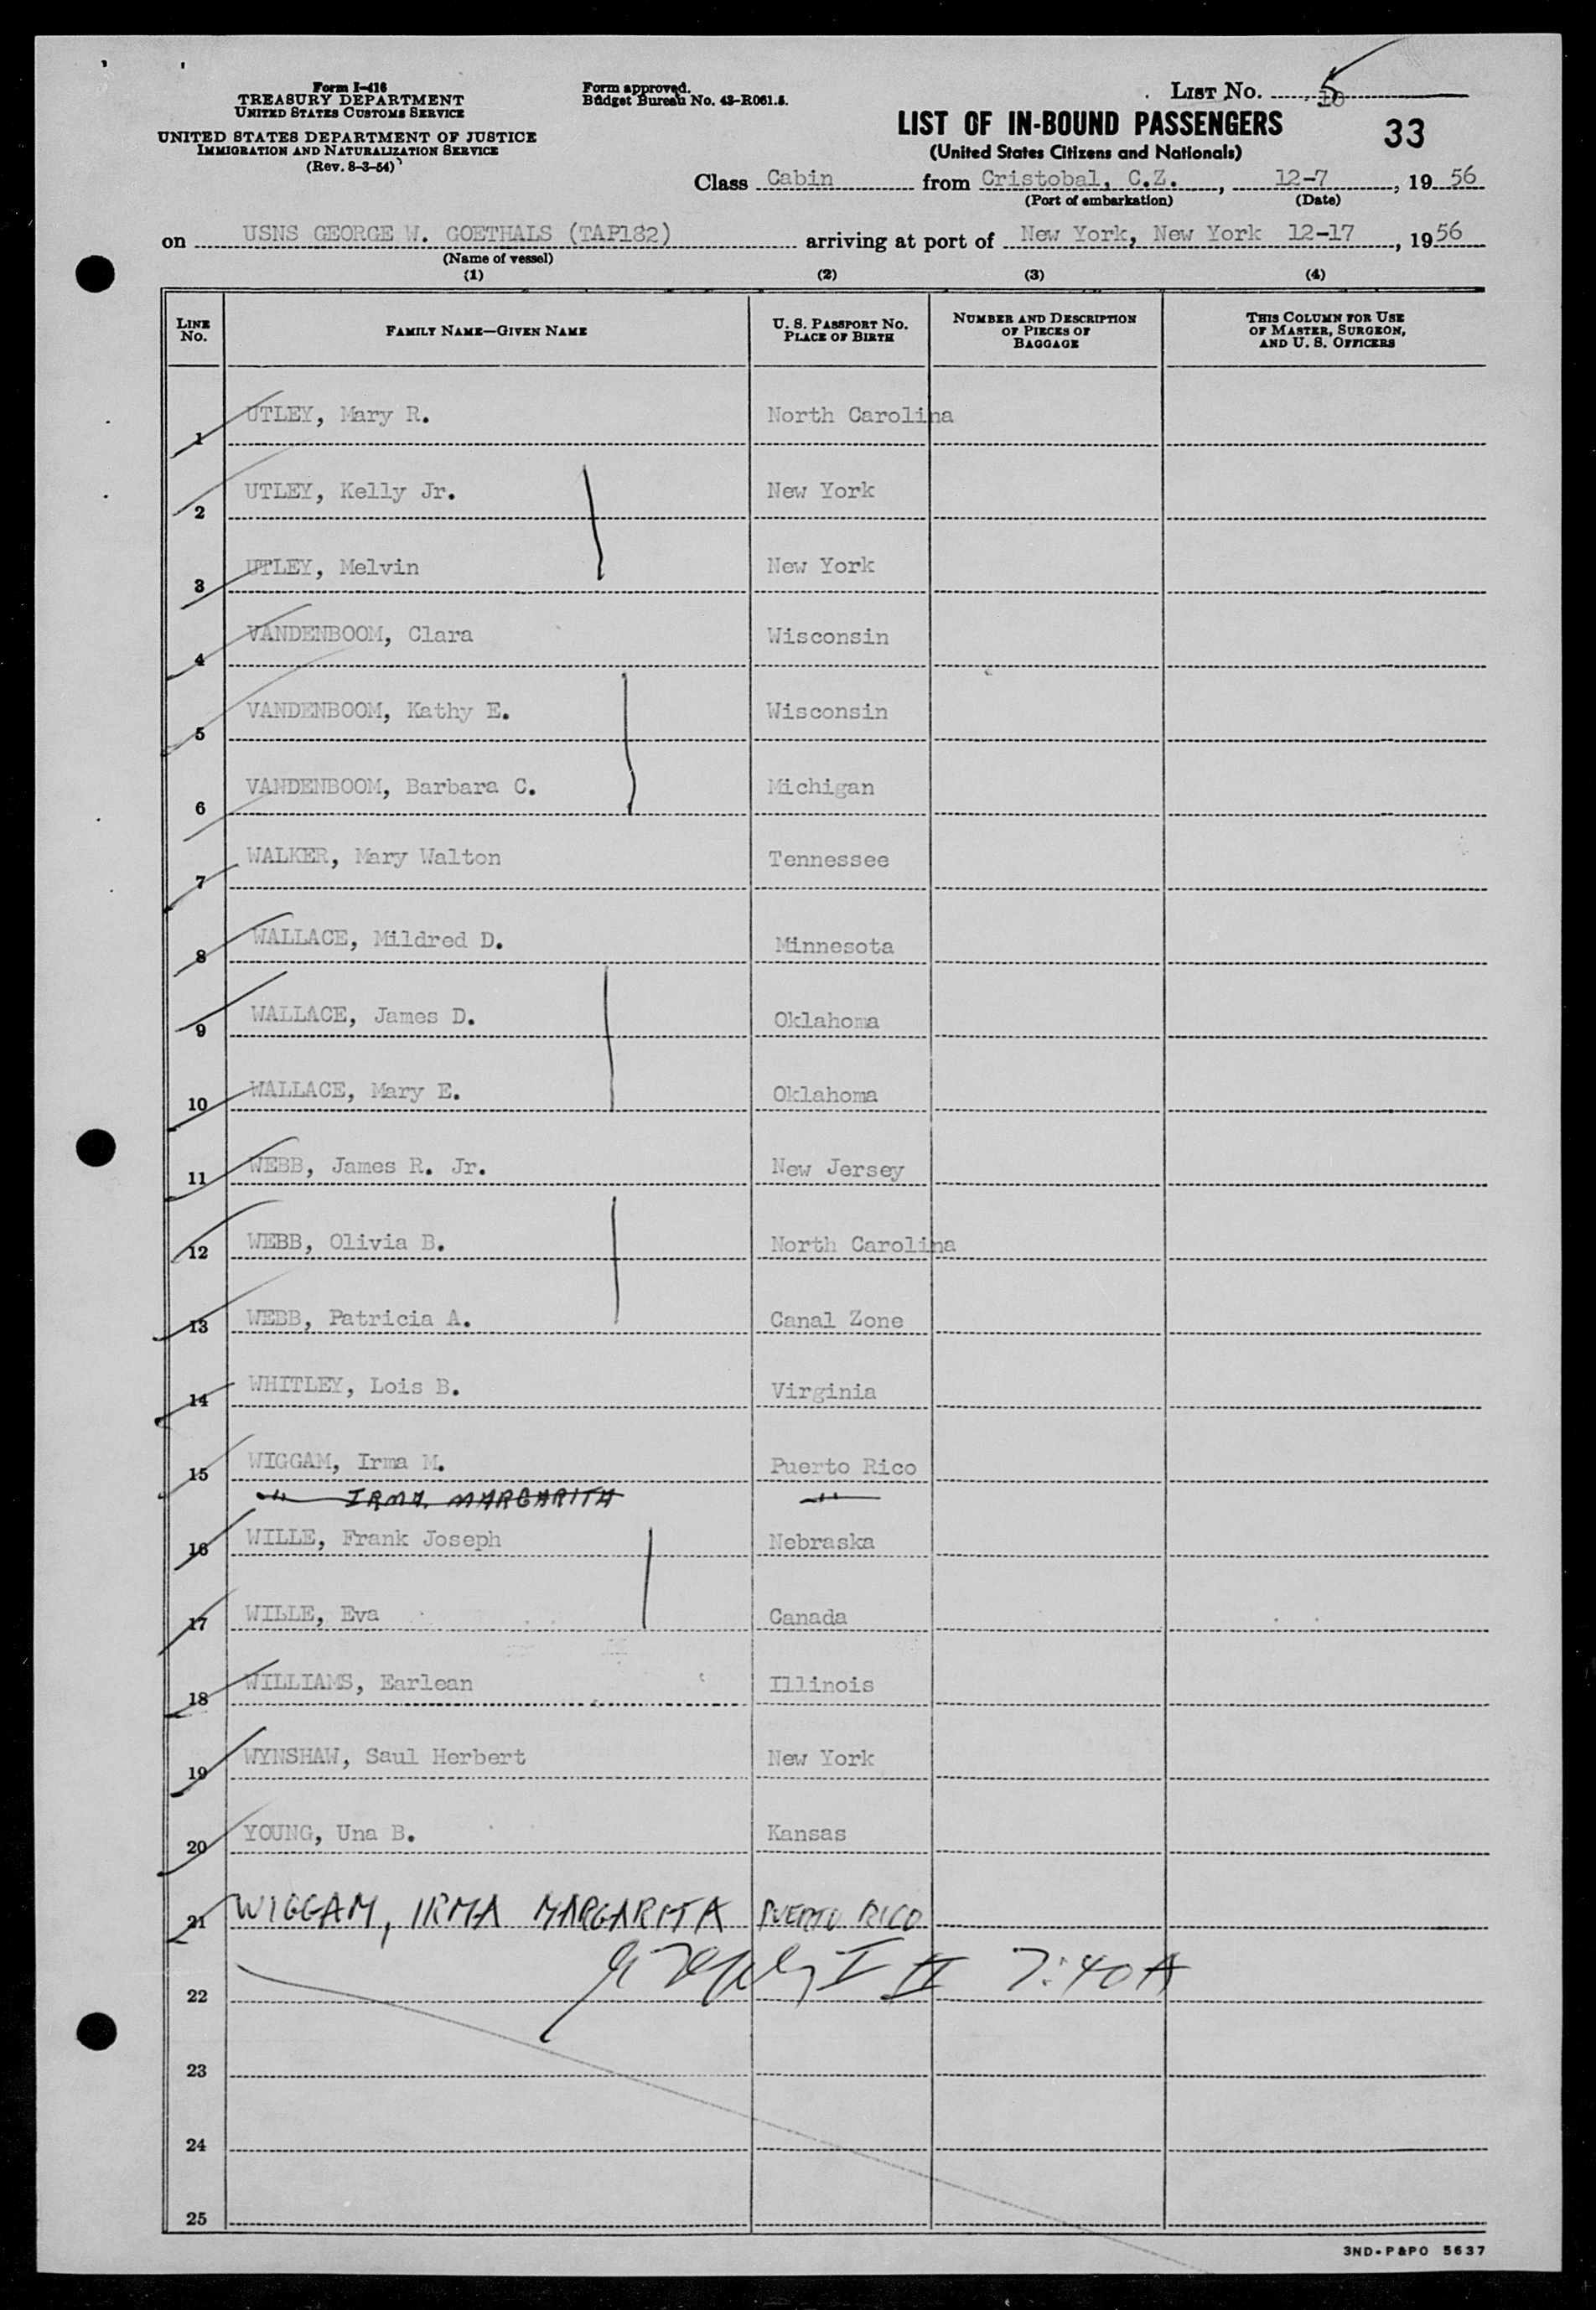 Form I-416
TREASURY DEPARTMENT
UNITED STATES CUSTOMS SERVICE
UNITED STATES DEPARTMENT OF JUSTICE
IMMIGRATION AND NATURALIZATION SERVICE
(Rev. 8-3-54)
Form approved.
Budget Bureau No. 43-R061.5.
LIST No. 5
LIST OF IN-BOUND PASSENGERS
33
(United States Citizens and Nationals)
Class Cabin from Cristobal, C.Z., 12-7, 19 56
(Port of embarkation) (Date)
on USNS GEORGE W. GOETHALS (TAP182) arriving at port of New York, New York 12-17, 1956
(Name of vessel)
(1) (2) (3) (4)
LINE No. FAMILY NAME—GIVEN NAME U. S. PASSPORT No. PLACE OF BIRTH NUMBER AND DESCRIPTION OF PIECES OF BAGGAGE THIS COLUMN FOR USE OF MASTER, SURGEON, AND U. S. OFFICERS
1 UTLEY, Mary R. North Carolina
2 UTLEY, Kelly Jr. New York
3 UTLEY, Melvin New York
4 VANDENBOOM, Clara Wisconsin
5 VANDENBOOM, Kathy E. Wisconsin
6 VANDENBOOM, Barbara C. Michigan
7 WALKER, Mary Walton Tennessee
8 WALLACE, Mildred D. Minnesota
9 WALLACE, James D. Oklahoma
10 WALLACE, Mary E. Oklahoma
11 WEBB, James R. Jr. New Jersey
12 WEBB, Olivia B. North Carolina
13 WEBB, Patricia A. Canal Zone
14 WHITLEY, Lois B. Virginia
15 WIGGAM, Irma M. Puerto Rico
" IRMA MARGARITA "
16 WILLE, Frank Joseph Nebraska
17 WILLE, Eva Canada
18 WILLIAMS, Earlean Illinois
19 WYNSHAW, Saul Herbert New York
20 YOUNG, Una B. Kansas
21 WIGGAM, IRMA MARGARITA PUERTO RICO
22 7:40A
23
24
25
3ND-P&PO 5637